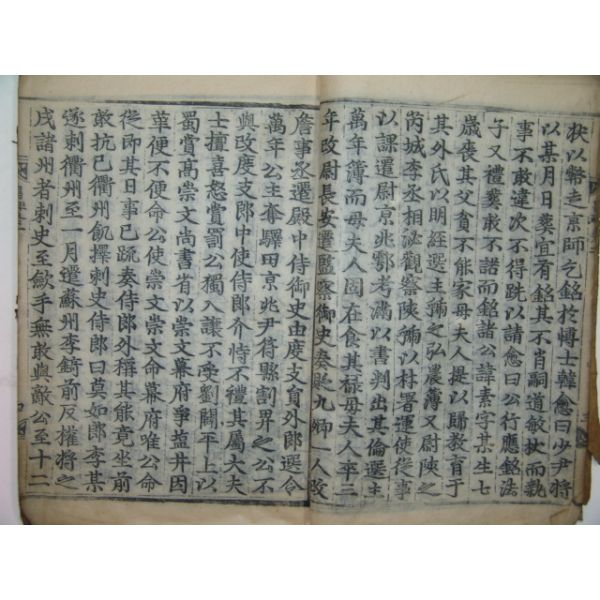 狀以幣之京師乞銘於博士韓愈曰少尹將
以某月日葬宜有銘其不肖嗣道敏杖而執
事不敢違次不得跣以請愈曰公行應銘法
子又禮葬敢不諾而銘諸公諱素字某生七
歲喪其父貧不能家母夫人提以歸教育于
其外氏以明經選主虢之弘農簿又尉陝之
芮城李丞相泌觀察陝虢以材署運使從事
以課遷尉京兆鄠考滿以書判出其倫選主
萬年簿而母夫人固在食其祿母夫人卒三
年改尉長安遷監察御史奏貶九卿一人改
詹事丞遷殿中侍御史由度支員外郎選令
萬年公主奪驛田京兆尹符縣割畀之公不
與改度支郎中使侍郎介恃不禮其屬大夫
士擅喜怒賞罰公獨入讓不受劉闢平上以
蜀賞高崇文尚書省以崇文幕府爭塩井因
革便不便命公使崇文崇文命幕府唯公命
從即其日事已疏奏侍郎外稱其能竟坐前
敢抗已衢州飢擇刺史侍郎曰莫如郎李某
遂刺衢州至一月遷蘇州李錡前反權將之
戍諸州者刺史至斂手無敢與敵公至十二